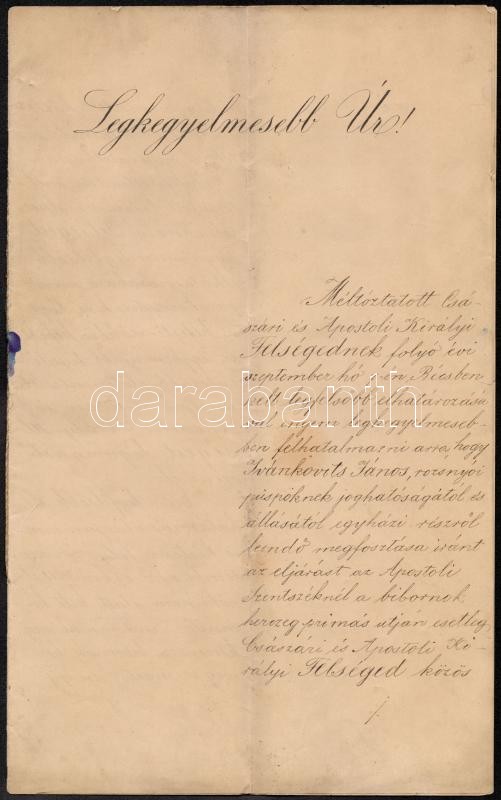 Legkegyelmesebb Úr!
Méltóztatott Csá-
szári és Apostoli Királyi
Felségednek folyó évi
szeptember hó -én Bécsben
kelt legfelsőbb elhatározásá
val engem legkegyelmeseb-
ben felhatalmazni arra, hogy
Ivánkovits János, rozsnyói
püspöknek joghatóságától és
állásától egyházi részről
leendő megfosztása iránt
az eljárást az Apostoli
Szentszéknél a bibornok
herczeg primás utján esetleg
Császári és Apostoli Ki-
rályi Felséged közös
./.
darabanth